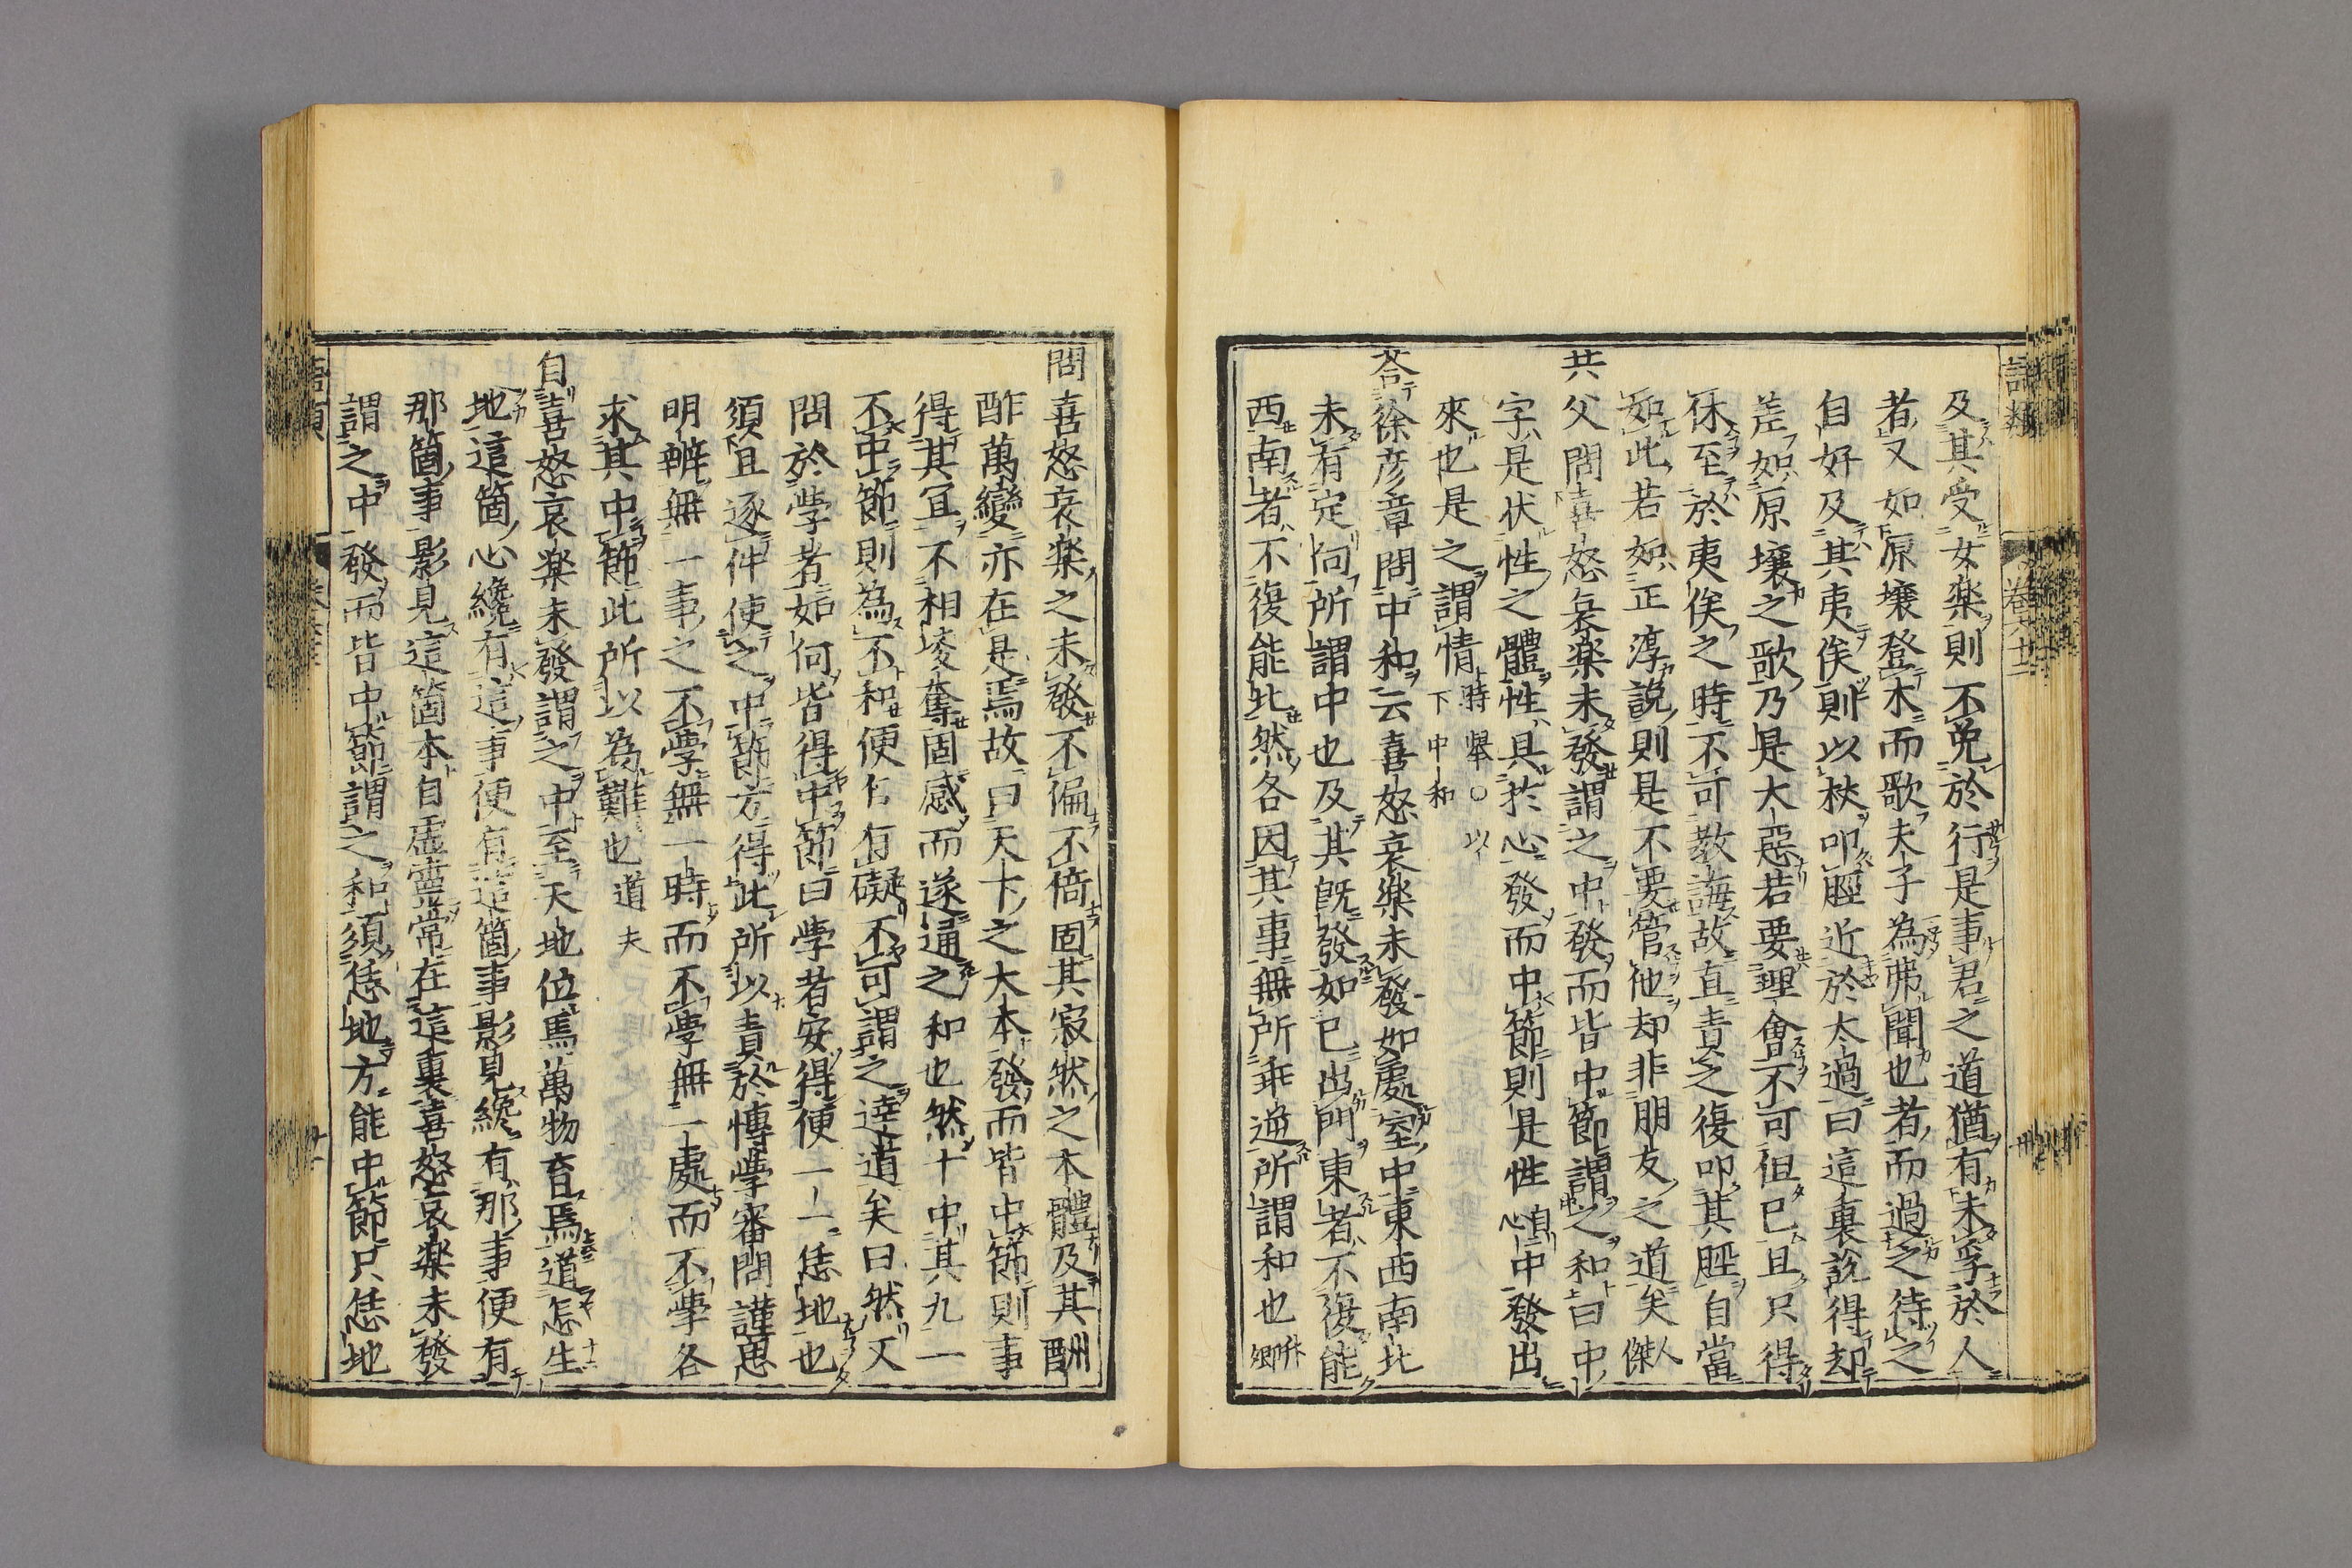 語類
卷六十二
及其受女樂則不免於行是事君之道猶有未孚於人
者又如原壤登木而歌夫子為弗聞也者而過之待之
自好及其夷俟則以杖叩脛近於太過曰這裏説得却
差如原壤之歌乃是大惡若要理會不可但已且只得
休至於夷俟之時不可教誨故直責之復叩其脛自當
如此若如正淳説則是不要管他却非朋友之道矣人傑
共父問喜怒哀楽未發謂之中發而皆中節謂之和曰中
字是状性之體性具於心發而中節則是性自心中發出
來也是之謂情時舉〇以下中和
答徐彦章問中和云喜怒哀樂未發如處室中東西南北
未有定向所謂中也及其既發如已出門東者不復能
西南者不復能北然各因其事無所乖逆所謂和也升卿
問喜怒哀楽之未發不偏不倚固其寂然之本體及其酬
酢萬變亦在是焉故曰天下之大本發而皆中節則事
得其宜不相凌奪固感而遂通之和也然十中其九一
不中節則為不和便自有礙不可謂之達道矣曰然又
問於學者如何皆得中節曰學者安得便一一恁地也
須且逐件使之中節方得此所以貴於博學審問謹思
明辨無一事之不學無一時而不學無一處而不學各
求其中節此所以為難也道夫
自喜怒哀楽未發謂之中至天地位焉萬物育焉道怎生
地這箇心纔有這事便有這箇事影見纔有那事便有
那箇事影見這箇本自虛靈常在這裏喜怒哀楽未發
謂之中發而皆中節謂之和須恁地方能中節只恁地
語類